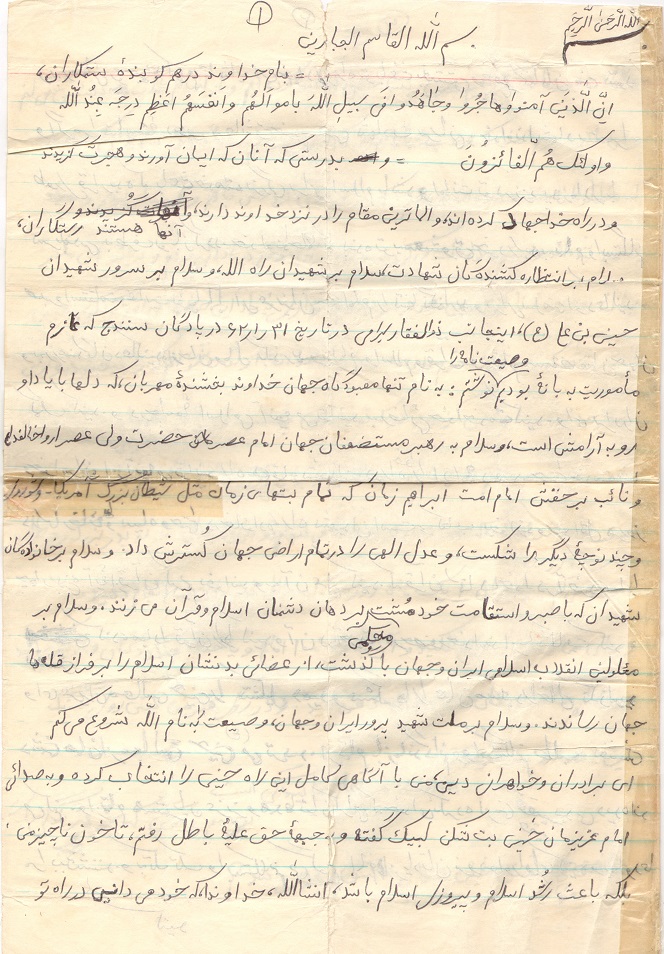 ۱
بسم الله الرحمن الرحیم
بسم الله القاسم الجبارین
= بنام خداوند درهم کوبندۀ ستمکاران،
اِنَّ الَّذینَ آمنوا وهاجُروا وجاهَدُوا فی سبیلِ اللّهَ باموالَهُم واَنفسَهُم اَعَظِم درِجَه عِندُالله
واولئک هُم الفائزُونَ = و بدرستی که آنان که ایمان آورند و هجرت گزیدند
ودر راه خدا جهاد کرده اند، والاترین مقام را در نزد خداوند دارند، و
آنها هستند رستگاران،
سلام، بر انتظاره کشندگان شهادت، سلام بر شهیدان راه الله، وسلام بر سرور شهیدان
حسین بن علی (ع)، اینجانب ذوالفقار در تاریخ ۶۲/۱/۳۱ در پادگان سنندج که عازم
مأموریت به بانۀ بودیم وصیت نامه را نوشتم: به نام تنها معبودگاه جهان خداوند بخشندۀ مهربان، که دلها با یاد او
رو به آرامش است، وسلام به رهبر مستضعفان جهان امام عصر حضرت ولی عصر ارواحنا لفداه
و نائب برحقش امام امت ابراهیم زمان که تمام بتهای زمان مثل شیطان بزرگ آمریکا-
وچند نوچۀ دیگر را شکست، و عدل الهی را در تمام اراضی جهان گُسترش داد. وسلام بر خانواده گان
شهیدان که با صبر و استقامت خود مُشت محکمی بر دهان دشمنان اسلام و قرآن می زنند. وسلام بر
معلولین انقلاب اسلامی ایران وجهان با گذشت، از عضائی بدنشان اسلام را بر فراز قله ها
جهان رساندند. وسلام بر ملت شهید پرور ایران وجهان، وصیعت را به نام اللّه شروع می کنم
ای برادران وخواهران دینی، من با آگاهی کامل این راه حسینی را انتخاب کرده و به صدائی
امام عزیزمان خمینی بت شکن لبیک گفته و به جبهۀ حق علیۀ باطل رفتم، تا خون ناچیز من
بلکه باعث رُشد اسلام و پیروزی اسلام باشد، انشاالله، خداوندا، که خود می دانی در راه تو